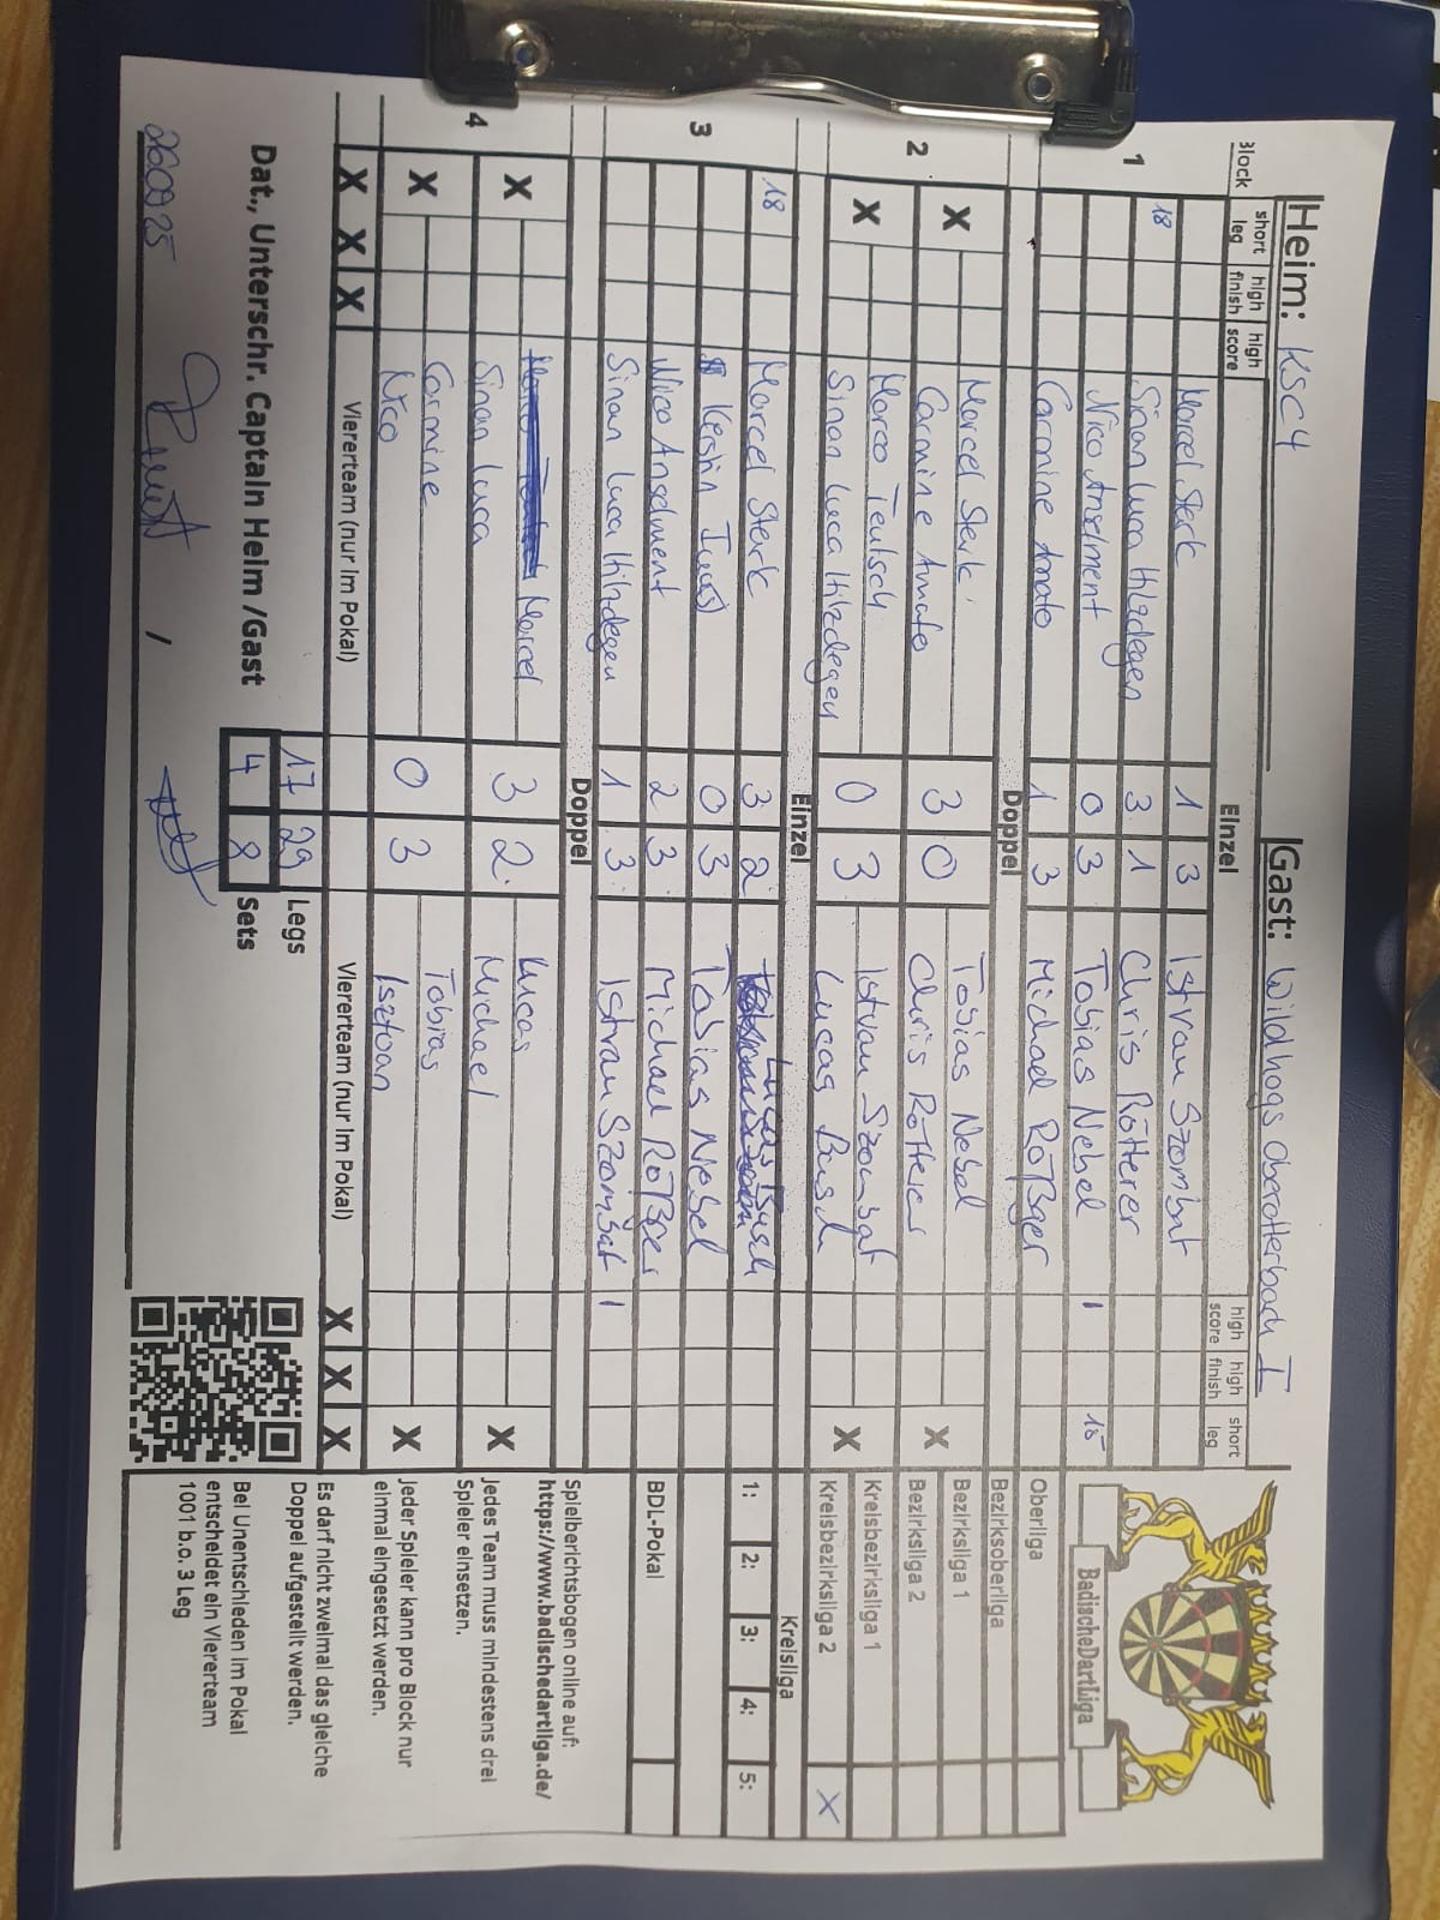 Heim: KSC4 Gast: Wildhogs Oberotterbach I
Block short leg high finish high score Einzel high score high finish short leg
1 Marcel Sterk 1 3 Istvan Szombat
18 Sinan Luca Hilzdegen 3 1 Chris Rötterer
Nico Anselment 0 3 Tobias Nebel 1 18
Carmine Amato 1 3 Michael Rößger
Doppel
2 X Marcel Sterk 3 0 Tobias Nebel X
Carmine Amato Chris Rötterer
X Marco Teutsch 0 3 Istvan Szombat X
Sinan Luca Hilzdegen Lucas Busch
Einzel
3 18 Marcel Sterk 3 2 Lucas Busch
Kerstin 0 3 Tobias Nebel
Nico Anselment 2 3 Michael Rößger
Sinan Luca Hilzdegen 1 3 Istvan Szombat 1
Doppel
4 X Marcel 3 2 Lucas X
Sinan Luca Michael
X Carmine 0 3 Tobias X
Nico Isztvan
X X X Viererteam (nur im Pokal) Viererteam (nur im Pokal) X X X
17 29 Legs
Dat., Unterschr. Captain Heim /Gast 4 8 Sets
260925 /
BadischeDartLiga
Oberliga
Bezirksoberliga
Bezirksliga 1
Bezirksliga 2
Kreisbezirksliga 1
Kreisbezirksliga 2 X
Kreisliga
1: 2: 3: 4: 5:
BDL-Pokal
Spielberichtsbogen online auf:
https://www.badischedartliga.de/
Jedes Team muss mindestens drei
Spieler einsetzen.
Jeder Spieler kann pro Block nur
einmal eingesetzt werden.
Es darf nicht zweimal das gleiche
Doppel aufgestellt werden.
Bei Unentschieden im Pokal
entscheidet ein Viererteam
1001 b.o. 3 Leg